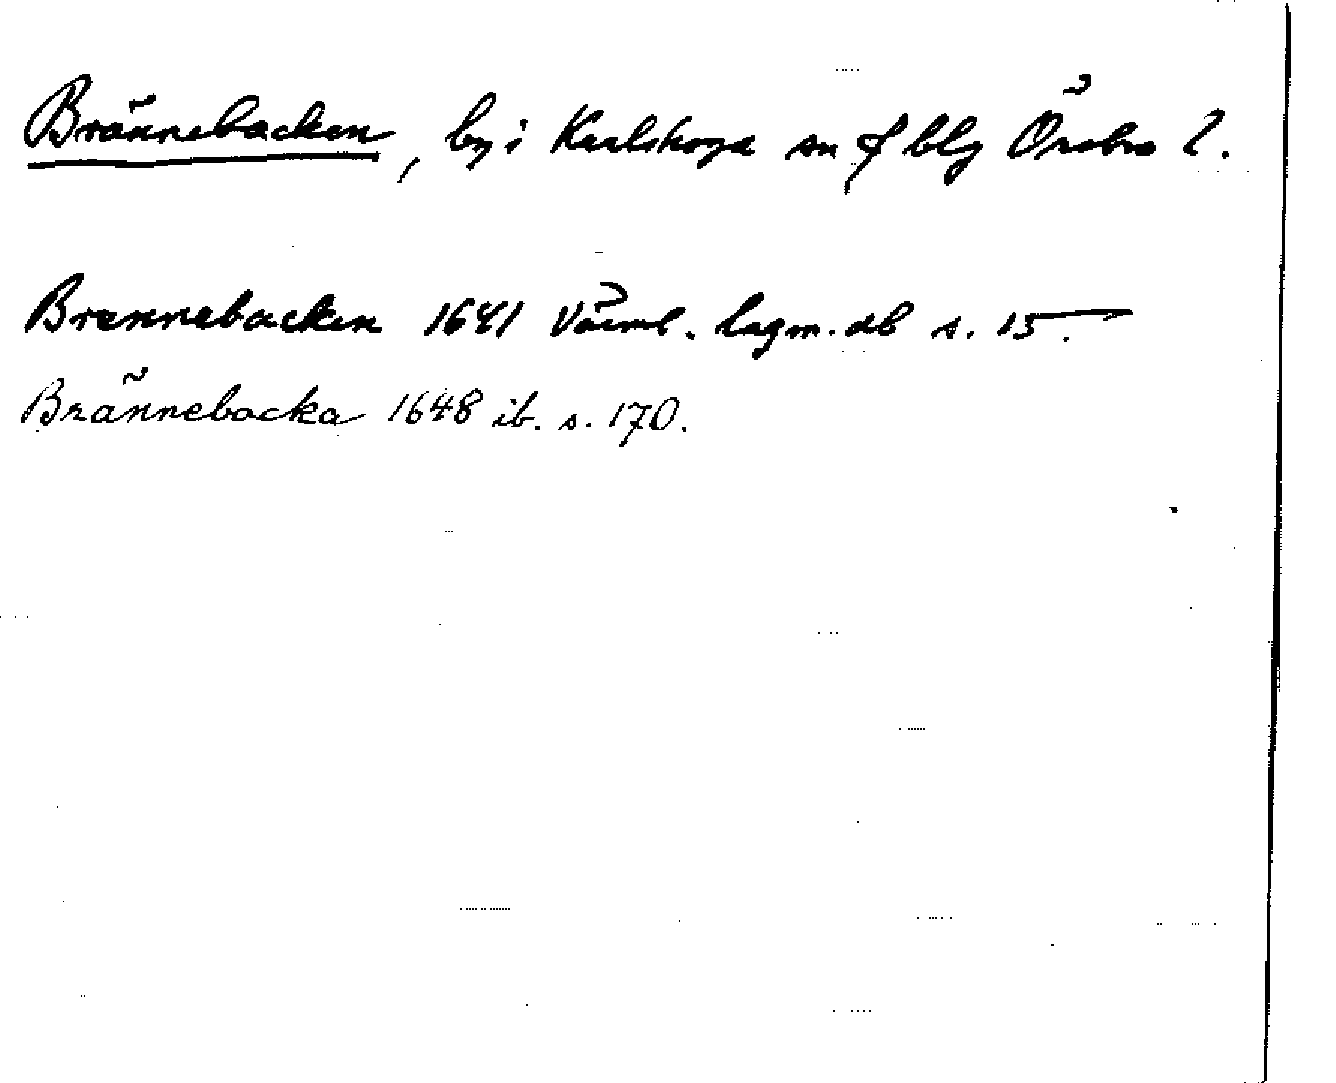 Brännebacken, by i Karlskoga sn o blg Örebro l.
Brennebacken 1641 Värml. lagm. db s. 15.
Brännebacka 1648 ib. s. 170.